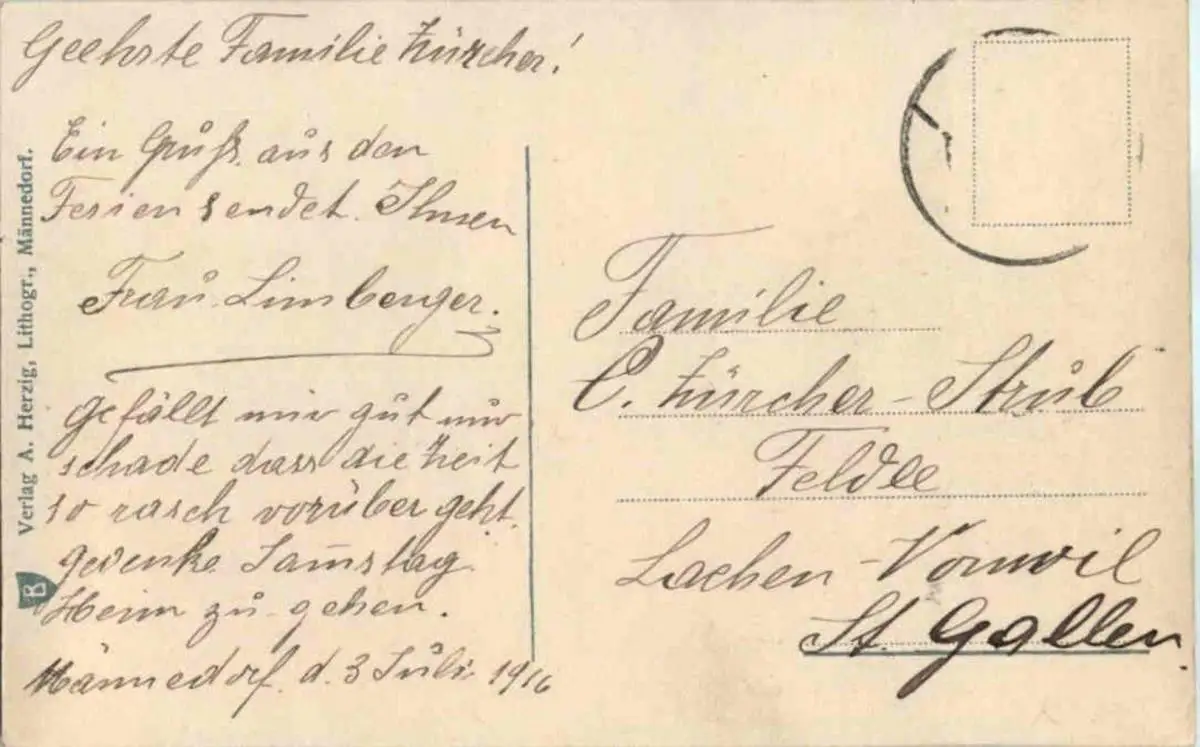 Geehrte Familie Zürcher!
Ein Gruß aus den
Ferien sendet Ihnen
Frau Limberger.
gefällt mir gut nur
schade dass die Zeit
so rasch vorüber geht.
gedenke Samstag
Heim zu gehen.
Männedorf d. 3 Juli 1916
Verlag A. Herzig, Lithogr., Männedorf.
B
Familie
E. Zürcher-Strub
Feldle
Lachen-Vonwil
St. Gallen